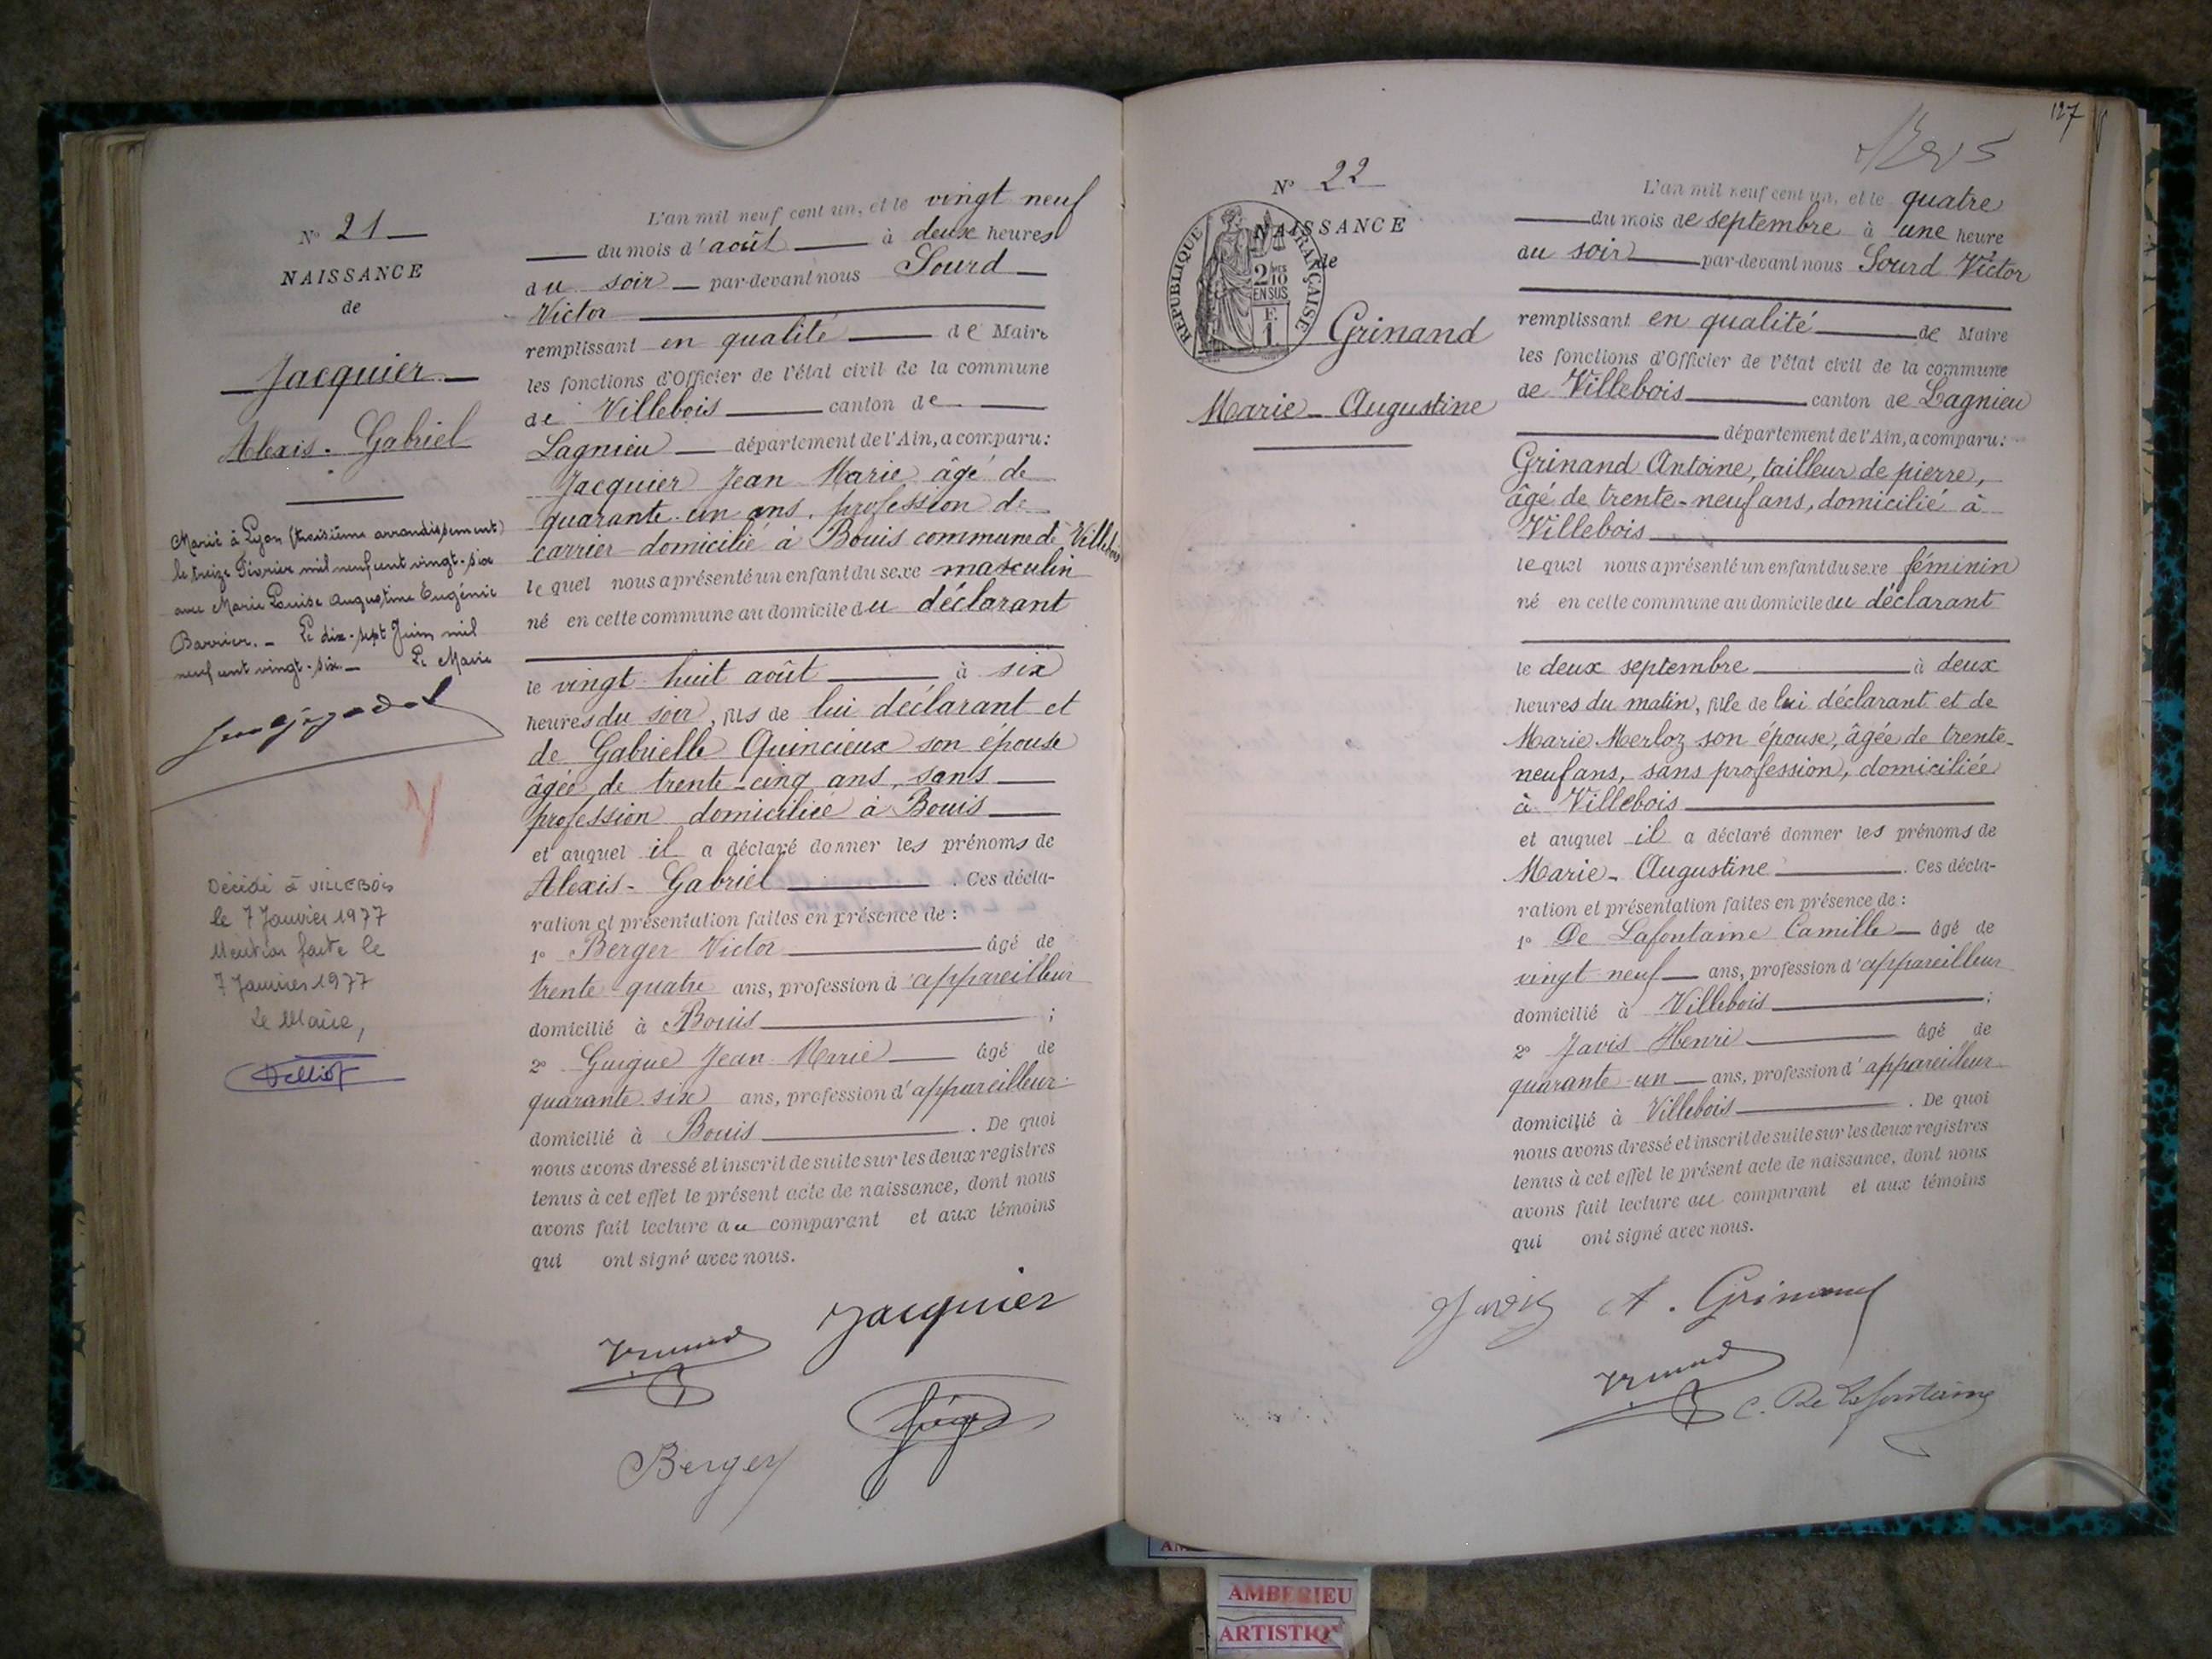 Nº 21
NAISSANCE
de
Jacquier
Alexis - Gabriel
Marié à Lyon (troisième arrondissement)
le treize Février mil neuf cent vingt-six
avec Marie Louise Augustine Eugénie
Barrier. - Le dix-sept Juin mil
neuf cent vingt-six. - Le Maire
Décédé à VILLEBOIS
le 7 Janvier 1977
Mention faite le
7 Janvier 1977
Le Maire,
L'an mil neuf cent un, et le vingt neuf
du mois d'août à deux heures
du soir par-devant nous Sourd
Victor
remplissant en qualité de Maire
les fonctions d'Officier de l'état civil de la commune
de Villebois canton de
Lagnieu département de l'Ain, a comparu :
Jacquier Jean Marie âgé de
quarante-un ans, profession de
carrier domicilié à Bouis commune de Villebois
lequel nous a présenté un enfant du sexe masculin
né en cette commune au domicile du déclarant
le vingt huit août à six
heures du soir, fils de lui déclarant et
de Gabrielle Quincieux son épouse
âgée de trente-cinq ans, sans
profession domiciliée à Bouis
et auquel il a déclaré donner les prénoms de
Alexis - Gabriel . Ces décla-
ration et présentation faites en présence de :
1º Berger Victor âgé de
trente quatre ans, profession d'appareilleur
domicilié à Bouis ;
2º Guigue Jean-Marie âgé de
quarante six ans, profession d'appareilleur
domicilié à Bouis . De quoi
nous avons dressé et inscrit de suite sur les deux registres
tenus à cet effet le présent acte de naissance, dont nous
avons fait lecture au comparant et aux témoins
qui ont signé avec nous.
Jacquier
Berger
127
Nº 22
NAISSANCE
de
RÉPUBLIQUE FRANÇAISE
2/10 EN SUS
F. 1.
Grinand
Marie - Augustine
L'an mil neuf cent un, et le quatre
du mois de septembre à une heure
du soir par-devant nous Sourd Victor
remplissant en qualité de Maire
les fonctions d'Officier de l'état civil de la commune
de Villebois canton de Lagnieu
département de l'Ain, a comparu :
Grinand Antoine, tailleur de pierre,
âgé de trente-neuf ans, domicilié à
Villebois
lequel nous a présenté un enfant du sexe féminin
né en cette commune au domicile du déclarant
le deux septembre à deux
heures du matin, fille de lui déclarant et de
Marie Merloz son épouse, âgée de trente-
neuf ans, sans profession, domiciliée
à Villebois
et auquel il a déclaré donner les prénoms de
Marie - Augustine . Ces décla-
ration et présentation faites en présence de :
1º De Lafontaine Camille âgé de
vingt neuf ans, profession d'appareilleur
domicilié à Villebois ;
2º Javis Henri âgé de
quarante-un ans, profession d'appareilleur
domicilié à Villebois . De quoi
nous avons dressé et inscrit de suite sur les deux registres
tenus à cet effet le présent acte de naissance, dont nous
avons fait lecture au comparant et aux témoins
qui ont signé avec nous.
Javis A. Grinand
C. De Lafontaine
AMBERIEU
ARTISTIQ